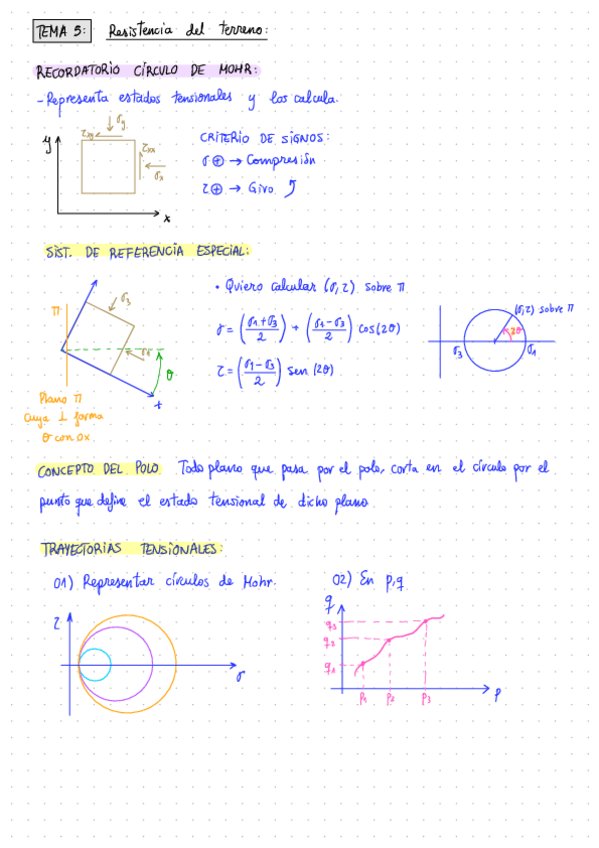 TEMA 5: Resistencia del terreno:
RECORDATORIO CÍRCULO DE MOHR:
- Representa estados tensionales y los calcula.
y
σy
τxy
τxx
σx
x
CRITERIO DE SIGNOS:
σ⊕ → Compresión
τ⊕ → Giro
SIST. DE REFERENCIA ESPECIAL:
π
σ3
σ1
θ
x
Plano π
cuya ⊥ forma
θ con ox
• Quiero calcular (σ,τ) sobre π
σ = (σ1+σ3/2) + (σ1-σ3/2) cos(2θ)
τ = (σ1-σ3/2) sen (2θ)
(σ,τ) sobre π
2θ
σ3
σ1
CONCEPTO DEL POLO Todo plano que pasa por el polo, corta en el círculo por el
punto que define el estado tensional de dicho plano
TRAYECTORIAS TENSIONALES:
01) Representar círculos de Mohr.
02) En p,q
τ
σ
q
q3
q2
q1
p1
p2
p3
p